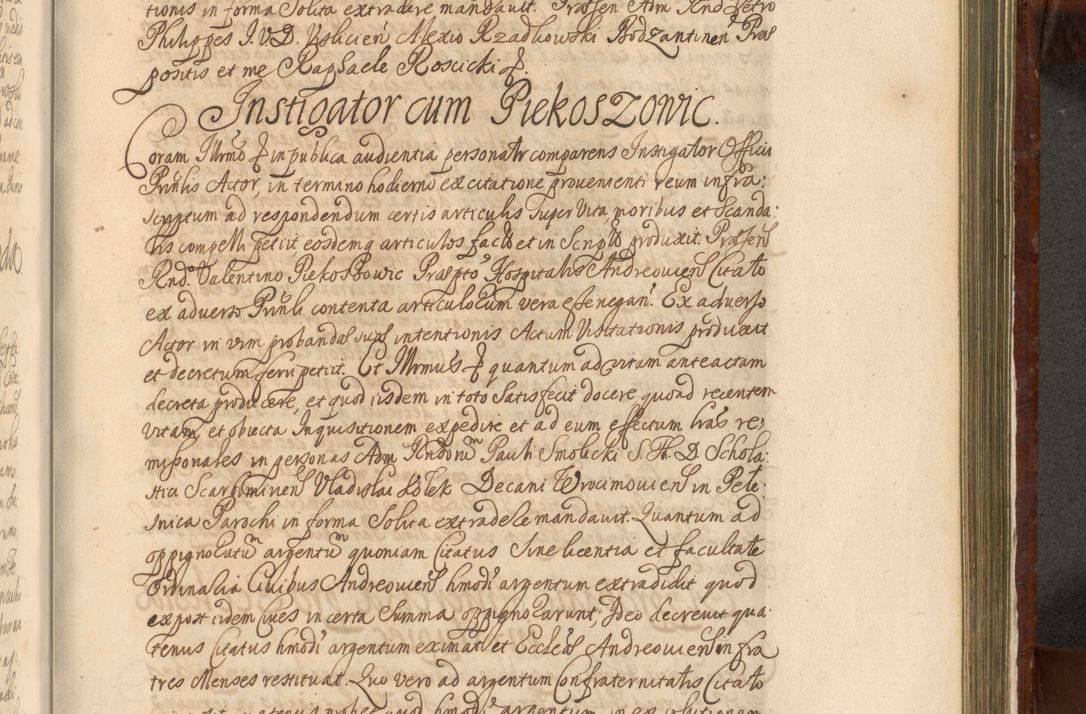 tionis in forma Solita extradere mandavit. Præsen Adm Rnd Petro
Philippes J. V. D. Vislicien Alexio Rzadkowski Bodzantinen Præ
positis et me Raphaele Roscicki
Instigator cum Piekoszowic.
Coram Illrmo in publica audientia personalr comparens Instigator Officii
Prnlis Actor, in termino hodierno ex citatione provenienti reum infra:
scriptum ad respondendum certis articulis super vita moribus et scanda:
lis compelli petiit eosdemq articulos facto et in scripto produxit. Præsen
Rndo Valentino Piekoszowic Præpto Hospitalis Andreovien Citato
ex adverso Prnli contenta articulorum vera esse negan. Ex adverso
Actor in vim probandæ suæ intentionis Actum Visitationis produxit
et decretum ferri petiit. Et Illrmus quantum ad vitam anteactam
decreta producere, et quod iisdem in toto satisfecit docere, quoad recentem
vitam et obiecta Inquisitionem expedire et ad eum effectum lras re:
missionales in personas Adm Rndorum Pauli Smolicki S. Th. D. Schola:
stici Scarbimirien Vladislai Lolek Decani Wrocimovien in Pele:
snica Parochi in forma Solita extradere mandavit. Quantum ad
oppignoratum argentum quoniam Citatus sine licentia et facultate
Ordinaria Civibus Andreovien hmodi argentum extradidit quod
ex post iidem Cives in certa summa oppignorarunt; Ideo decrevit qua:
tenus Citatus hmodi argentum eximat et Ecclesiæ Andreovien infra
tres Menses restituat. Quo vero ad argentum Confraternitatis Citato